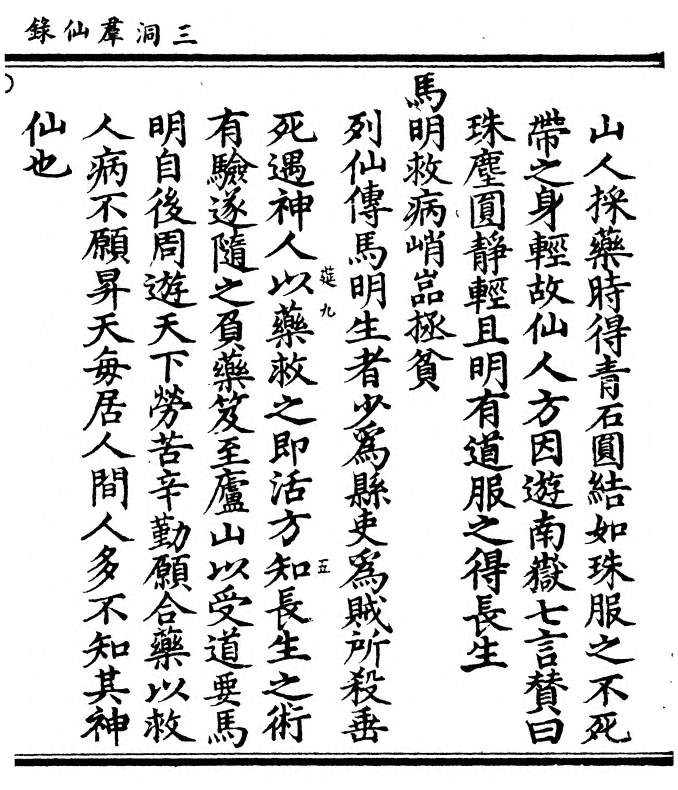 三洞羣仙錄
山人採藥時得青石圓結如珠服之不死
帶之身輕故仙人方因遊南嶽七言賛曰
珠塵圓靜輕且明有道服之得長生
馬明救病峭嵓拯貧
列仙傳馬明生者少爲縣吏爲賊所殺垂
死遇神人以藥救之即活方知長生之術
筵九
五
有驗遂隨之負藥笈至廬山以受道要馬
明自後周遊天下勞苦辛勤願合藥以救
人病不願昇天每居人間人多不知其神
仙也